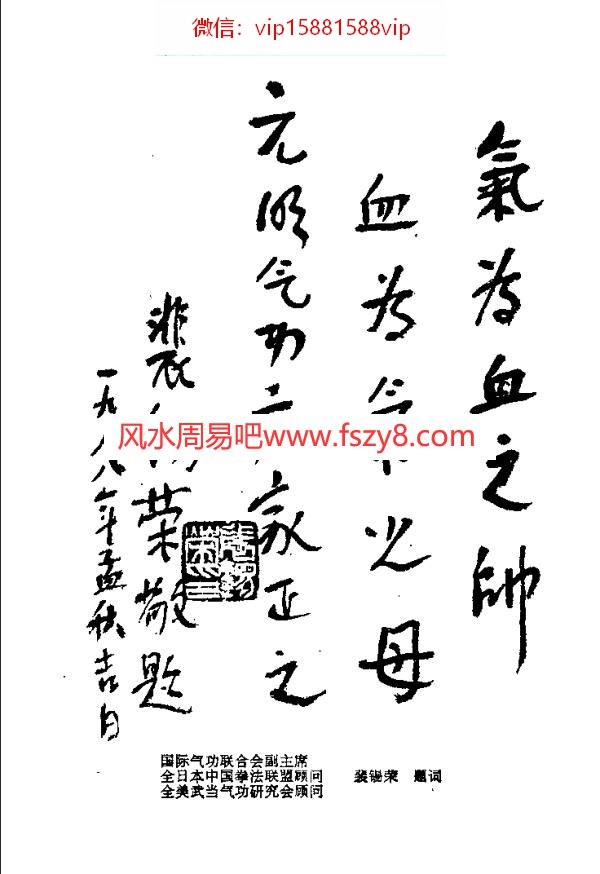 微信：vip15881588vip
氣为血之帥
血为氣之母
元明气功二家正之
裴锡荣敬题
一九八八年孟秋吉日
风水周易吧www.fszy8.com
国际气功联合会副主席
全日本中国拳法联盟顾问 裴锡荣 题词
全美武当气功研究会顾问